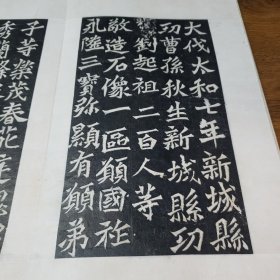 大伐太和七年新城縣
功曹孫秋生新城縣功
曹劉起祖二百人等
敬造石像一區願國祚
永隆三寶弥顯有願弟
子等榮茂春葩庭
秀蘭條